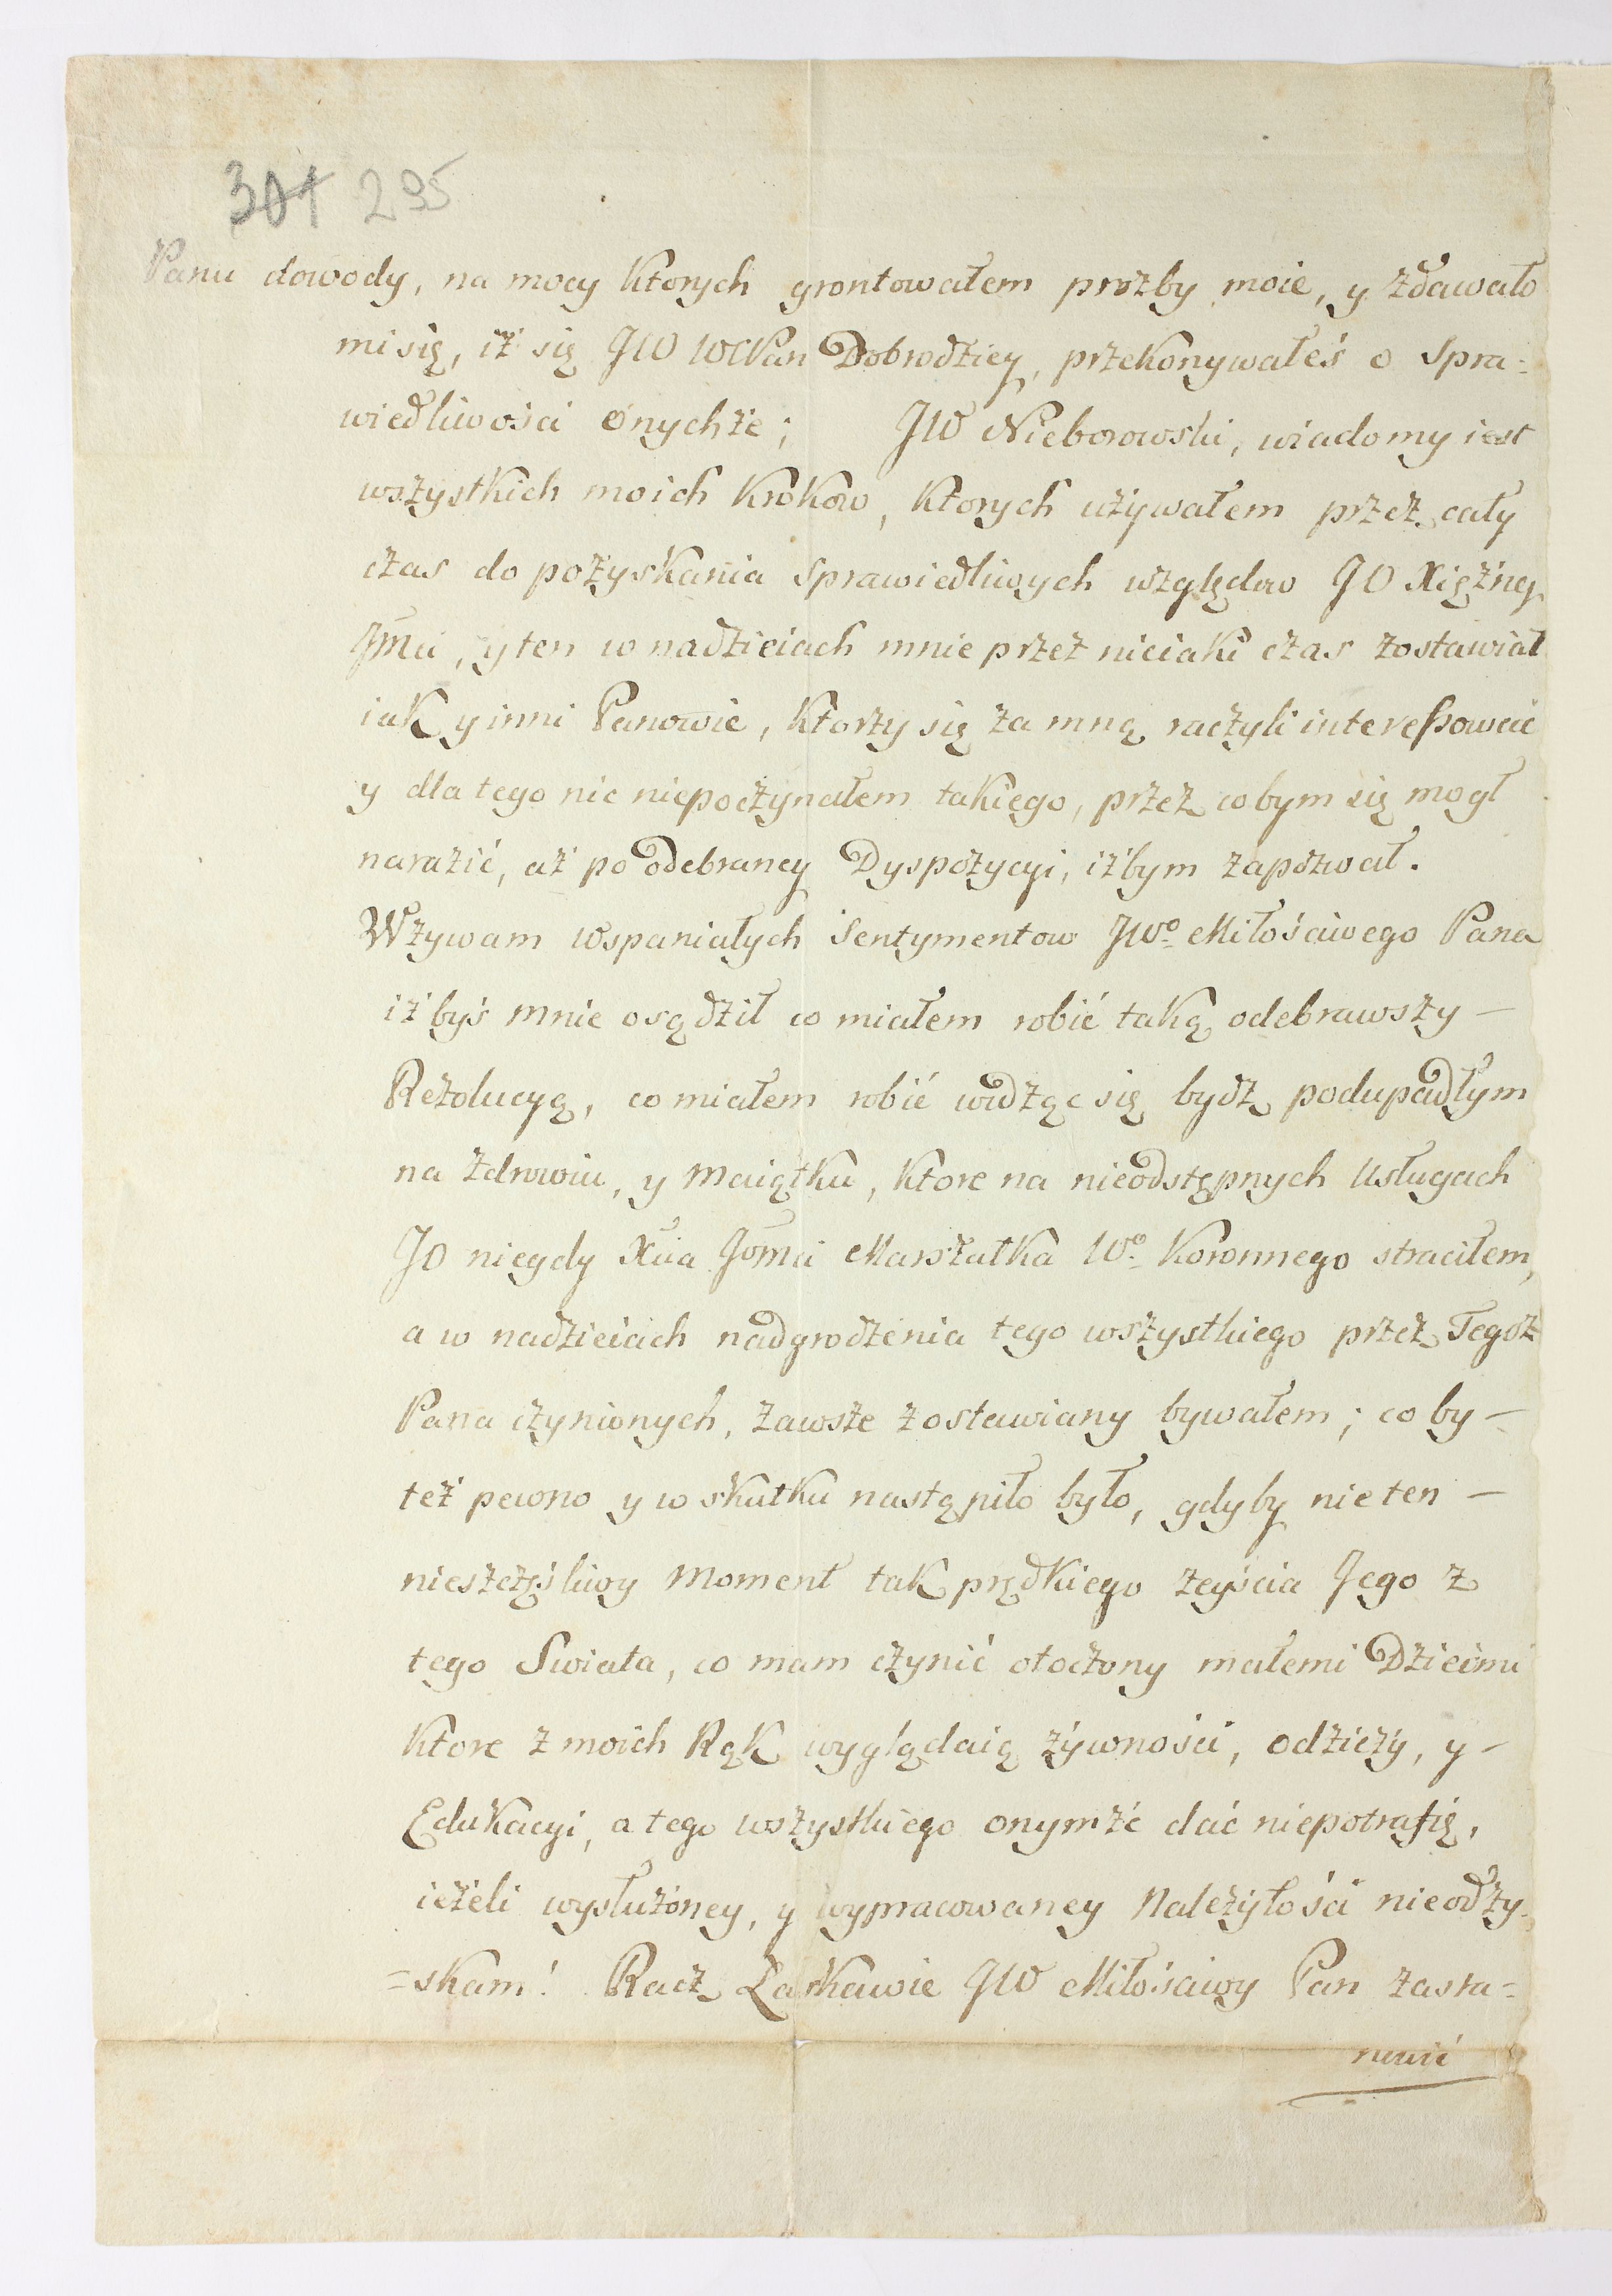 301 295
Panu dowody, na mocy ktorych grontowałem prozby moie, y zdawało
mi się, iż się JW WCPan Dobrodziey, przekonywałeś o spra=
wiedliwości onychże; JW Nieborowski, wiadomy iest
wszystkich moich krokow, ktorych używałem przez cały
czas do pozyskania sprawiedliwych względow JO Xiężney
Jmci, y ten w nadzieiach mnie przez nieiaki czas zostawiał
iak y inni Panowie, ktorzy się za mną raczyli interessować
y dla tego nic niepoczynałem takiego, przez cobym się mogł
narazić, aż po odebraney Dyspozycyi, iżbym zapozwał.
Wzywam wspaniałych sentymentow JWo Miłościwego Pana
iżbyś mnie osądził co miałem robić taką odebrawszy —
Rezolucyą, co miałem robić widząc się bydz podupadłym
na zdrowiu, y maiątku, ktore na nieodstępnych usługach
JO niegdy Xcia Jomci Marszałka Wo Koronnego straciłem,
a w nadzieiach nadgrodzenia tego wszystkiego przez Tegoż
Pana czynionych, zawsze zostawiany bywałem; co by —
też pewno y w skutku nastąpiło było, gdyby nie ten —
nieszczęśliwy moment tak prędkiego zeyścia Jego z
tego Swiata, co mam czynić otoczony małemi Dziećmi
ktore z moich Rąk wyglądaią żywności, odzieży, y —
Edukacyi, a tego wszystkiego onymże dać niepotrafię,
ieżeli wysłużoney, y wypracowaney należytości nieodzy=
=skam! Racz Łaskawie JW Miłościwy Pan zasta=
nowić